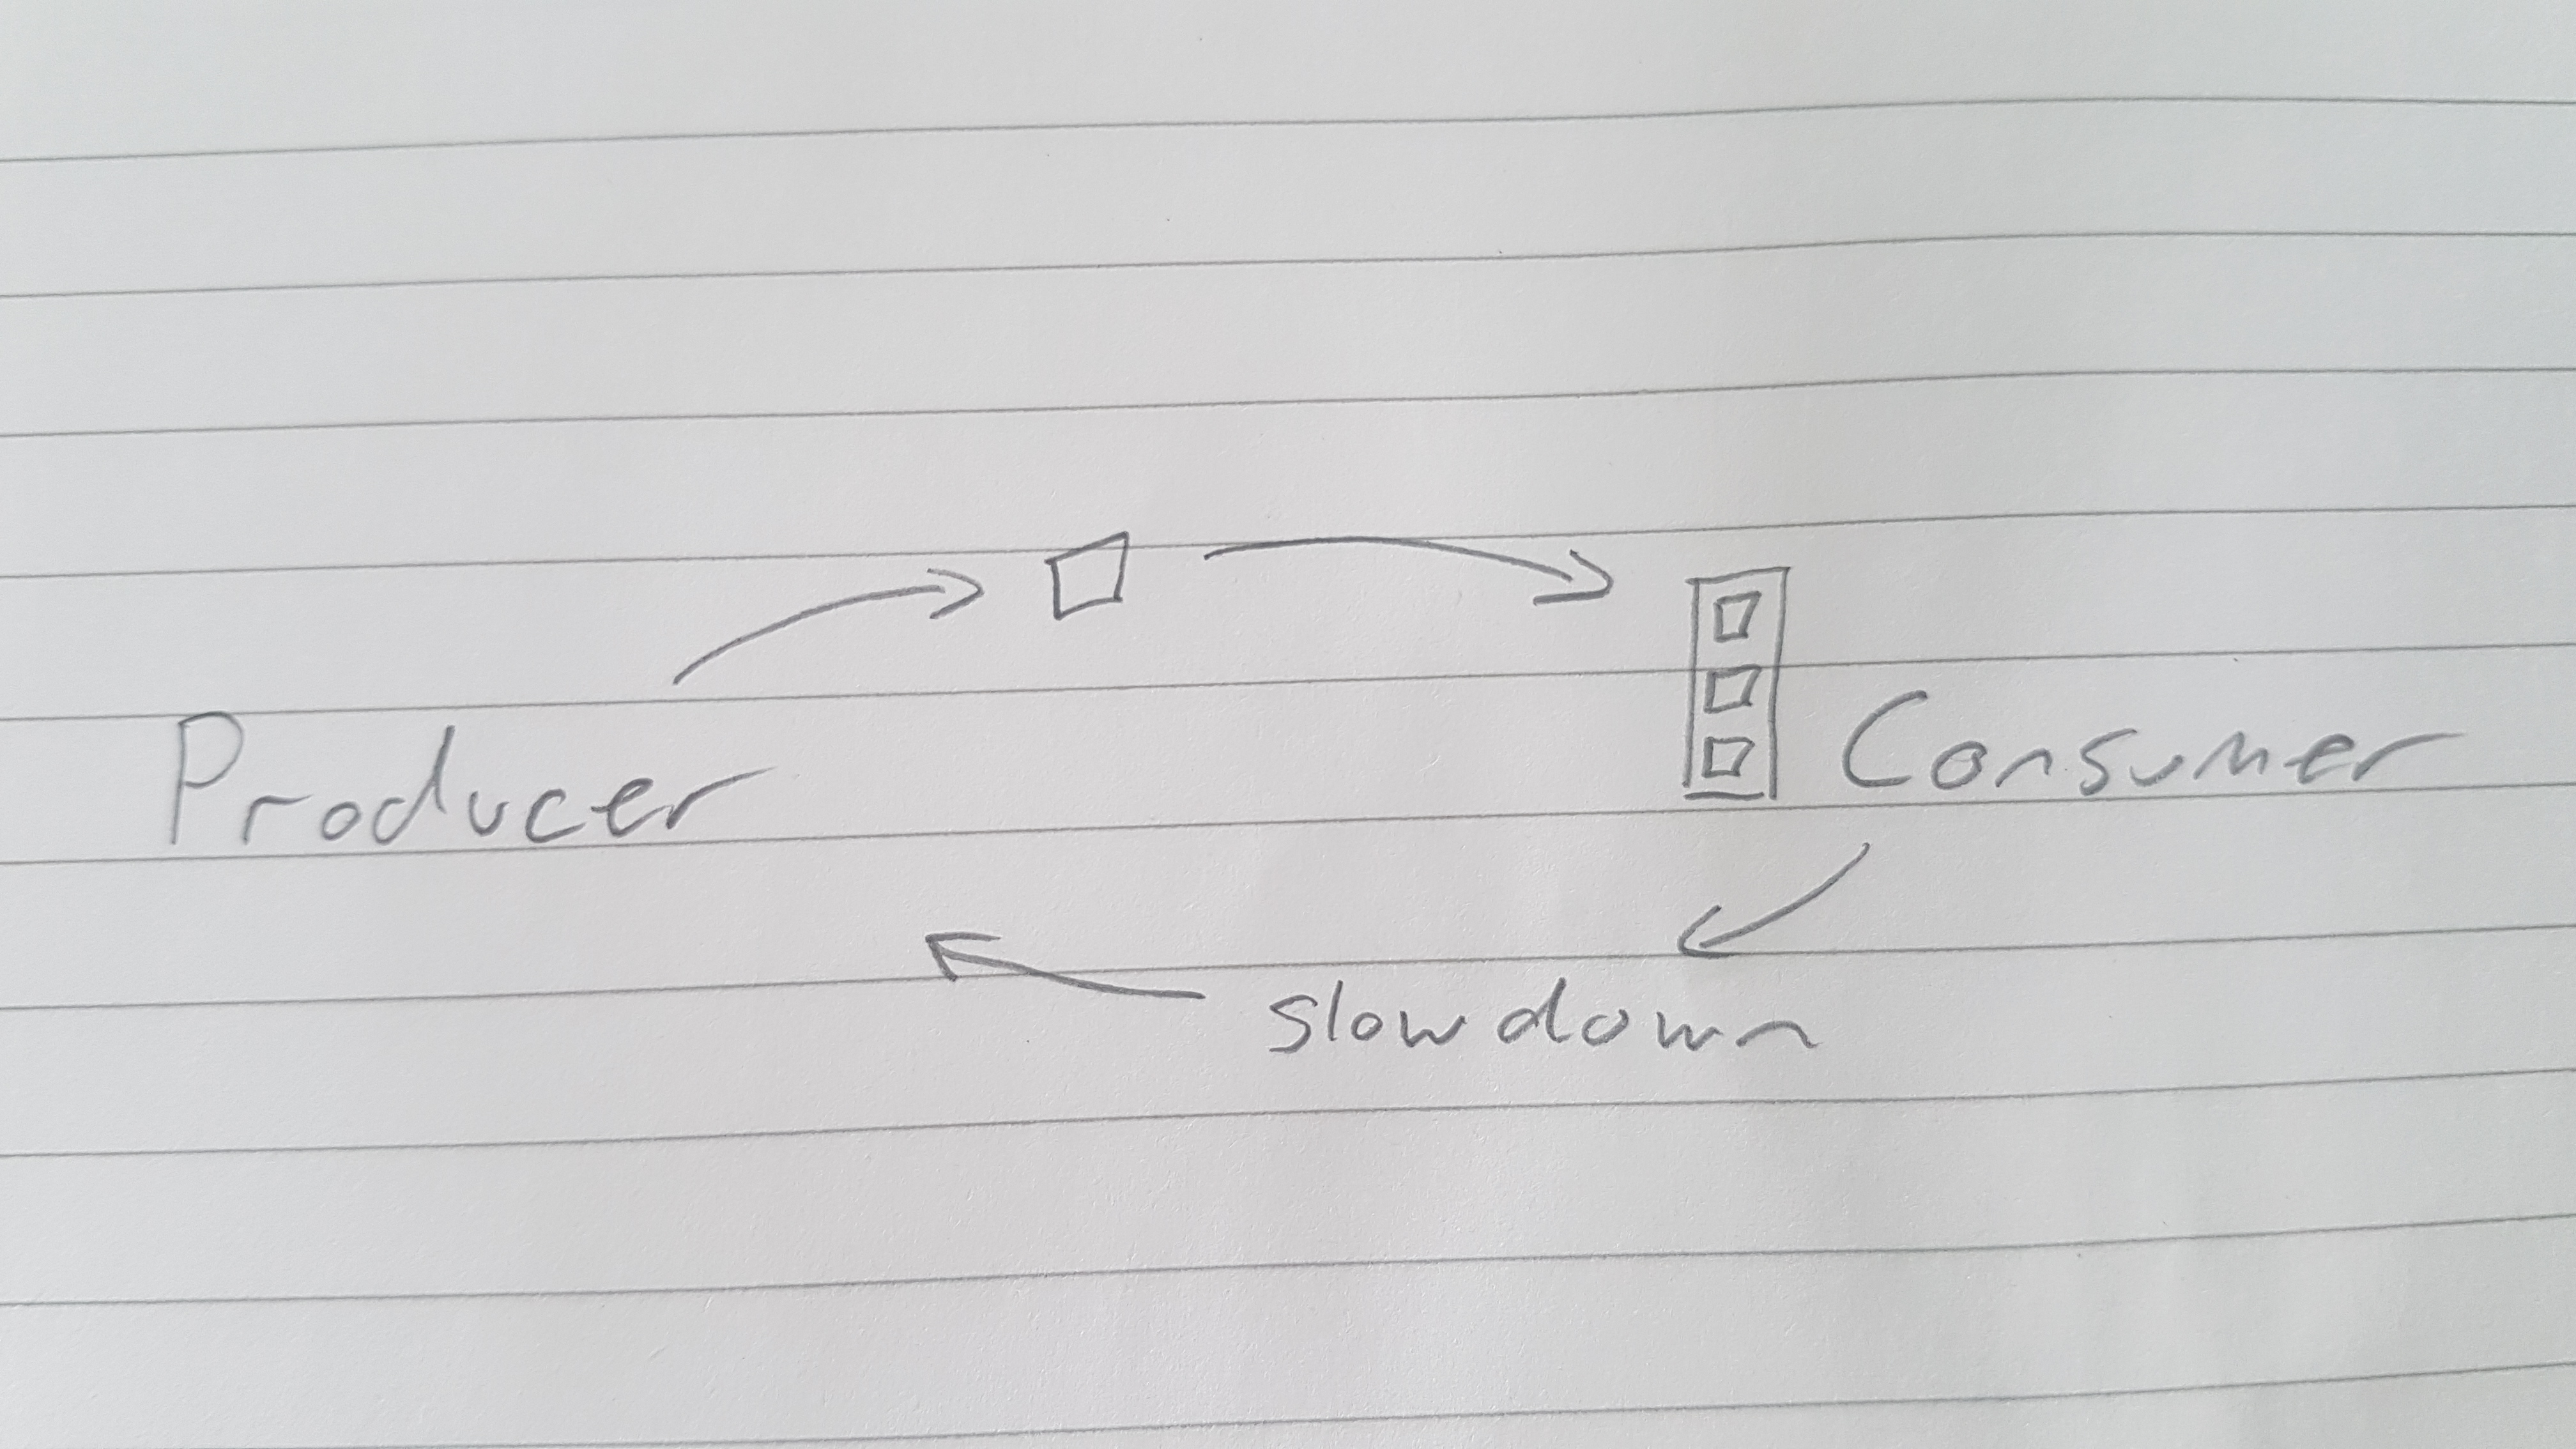 Producer
Consumer
slow down